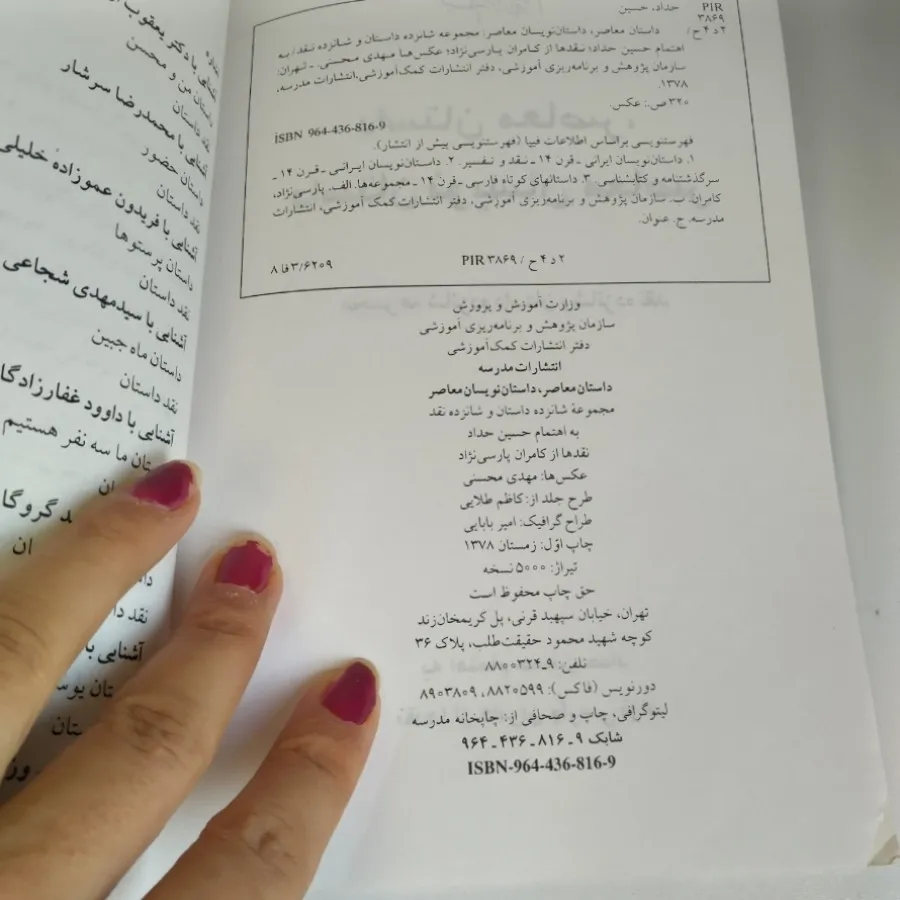 حداد، حسین
PIR
۳۸۶۹
۲ د ۴ ح /
داستان معاصر، داستان‌نویسان معاصر: مجموعه شانزده داستان و شانزده نقد/ به
اهتمام حسین حداد؛ نقدها از کامران پارسی‌نژاد؛ عکس‌ها مهدی محسنی. ـ تهران:
سازمان پژوهش و برنامه‌ریزی آموزشی، دفتر انتشارات کمک‌آموزشی، انتشارات مدرسه،
۱۳۷۸.
۳۲۰ ص.: عکس.
ISBN 964-436-816-9
فهرستنویسی براساس اطلاعات فیپا (فهرستنویسی پیش از انتشار).
۱. داستان‌نویسان ایرانی ـ قرن ۱۴ ـ نقد و تفسیر. ۲. داستان‌نویسان ایرانی ـ قرن ۱۴ ـ
سرگذشتنامه و کتابشناسی. ۳. داستانهای کوتاه فارسی ـ قرن ۱۴ ـ مجموعه‌ها. الف. پارسی‌نژاد،
کامران. ب. سازمان پژوهش و برنامه‌ریزی آموزشی، دفتر انتشارات کمک آموزشی، انتشارات
مدرسه. ج. عنوان.
۲ د ۴ ح / PIR ۳۸۶۹
۸ فا ۳/۶۲۰۹
وزارت آموزش و پرورش
سازمان پژوهش و برنامه‌ریزی آموزشی
دفتر انتشارات کمک‌آموزشی
انتشارات مدرسه
داستان معاصر، داستان‌نویسان معاصر
مجموعهٔ شانزده داستان و شانزده نقد
به اهتمام حسین حداد
نقدها از کامران پارسی‌نژاد
عکس‌ها: مهدی محسنی
طرح جلد از: کاظم طلایی
طراح گرافیک: امیر بابایی
چاپ اوّل: زمستان ۱۳۷۸
تیراژ: ۵۰۰۰ نسخه
حق چاپ محفوظ است
تهران، خیابان سپهبد قرنی، پل کریمخان‌زند
کوچه شهید محمود حقیقت‌طلب، پلاک ۳۶
تلفن: ۹ـ۸۸۰۰۳۲۴
دورنویس (فاکس): ۸۸۲۰۵۹۹، ۸۹۰۳۸۰۹
لیتوگرافی، چاپ و صحافی از: چاپخانه مدرسه
شابک ۹ ـ ۸۱۶ ـ ۴۳۶ ـ ۹۶۴
ISBN-964-436-816-9
آشنایی با دکتر یعقوب
داستان من و محسن
نقد داستان
آشنایی با محمدرضا سرشار
داستان حضور
نقد داستان
آشنایی با فریدون عموزاده خلیلی
داستان پرستوها
نقد داستان
آشنایی با سیدمهدی شجاعی
داستان ماه جبین
نقد داستان
آشنایی با داوود غفارزادگا
ستان ما سه نفر هستیم
ان
د گروگا
ان
نقد دا
آشنایی با
تان یوس
ستان